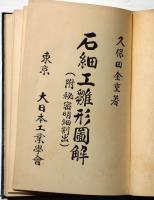 久保田金重著
石細工雛形圖解
(附秘密明細割出)
東京 大日本工業學會